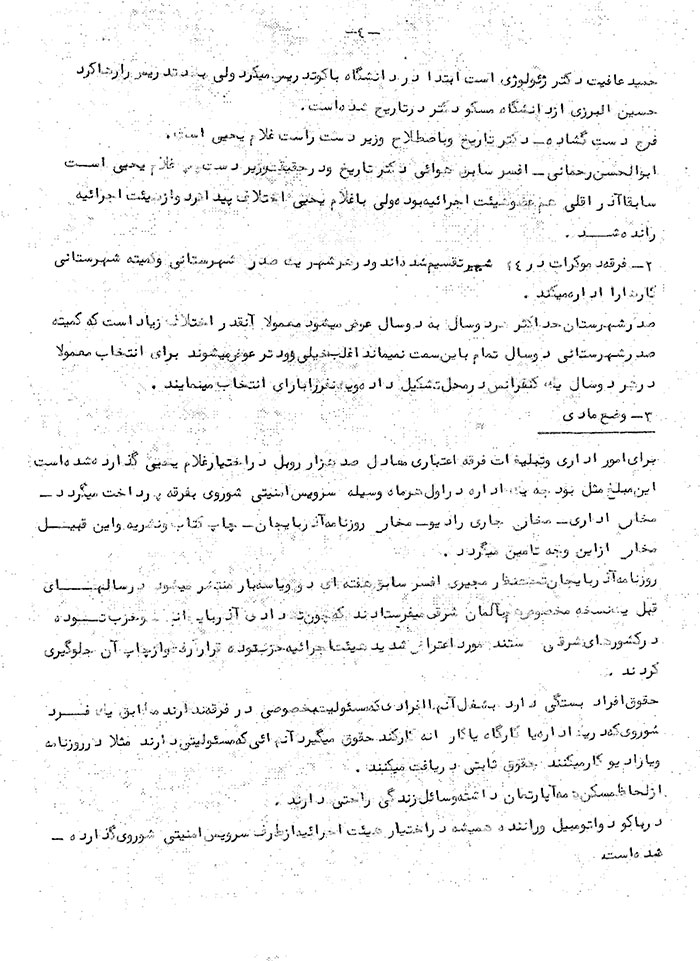 ـ٤ـ
حمید عافیت دکتر ژئولوژی است ابتدا در دانشگاه باکو تدریس میکرد ولی بعد تدریس را رها کرد
حسین البرزی از دانشگاه مسکو دکتر در تاریخ شده است .
فرج دست گشاده ـ دکتر تاریخ و باصطلاح وزیر دست راست غلام یحیی است .
ابوالحسن رحمانی ـ افسر سابق هوائی دکتر تاریخ و در حقیقت وزیر دست چپ غلام یحیی است
سابقا آذر اقلی هم عضو هیئت اجرائیه بوده ولی با غلام یحیی اختلاف پیدا کرد و از هیئت اجرائیه
رانده شد .
۲ـ فرقه دموکرات در ۲٤ شهر تقسیم شده اند و در هر شهر یک صدر شهرستانی و کمیته شهرستانی
کارها را اداره میکند .
صدر شهرستان حداکثر هر دو سال به دو سال عوض میشود معمولا آنقدر اختلاف زیاد است که کمیته
صدر شهرستانی دو سال تمام باین سمت نمیماند اغلب خیلی زودتر عوض میشوند برای انتخاب معمولا
در هر دو سال یک کنفرانس در محل تشکیل داده و یک نفر را با رای انتخاب مینمایند .
۳ـ وضع مادی
برای امور اداری و تبلیغات فرقه اعتباری معادل صد هزار روبل در اختیار غلام یحیی گذارده شده است
این مبلغ مثل بودجه یک اداره در اول هر ماه وسیله سرویس امنیتی شوروی بفرقه پرداخت میگردد ـ
مخارج اداری ـ مخارج جاری رادیو ـ مخارج روزنامه آذربایجان ـ چاپ کتاب و نشریه و این قبیل
مخارج از این وجه تامین میگردد .
روزنامه آذربایجان تحت نظر مجیری افسر سابق هفته ای دو و یا سه بار منتشر میشود در سالهای
قبل یک نسخه مخصوص به آلمان شرقی میفرستادند که چون تعدادی آذربایجانی عضو حزب توده
در کشورهای شرقی هستند مورد اعتراض شدید هیئت اجرائیه حزب توده قرار گرفت و از چاپ آن جلوگیری
کردند .
حقوق افراد بستگی دارد بشغل آنها افرادی که مسئولیت بخصوصی در فرقه ندارند مطابق یک فرد
شوروی که در یک اداره یا کارگاه یا کارخانه کار کند حقوق میگیرد آنهائی که مسئولیتی دارند مثلا در روزنامه
و یا رادیو کار میکنند حقوق ثابتی دریافت میکنند .
از لحاظ مسکن همه آپارتمان داشته وسائل زندگی راحتی دارند .
در باکو دو اتومبیل و راننده همیشه در اختیار هیئت اجرائیه از طرف سرویس امنیتی شوروی گذارده ـ
شده است